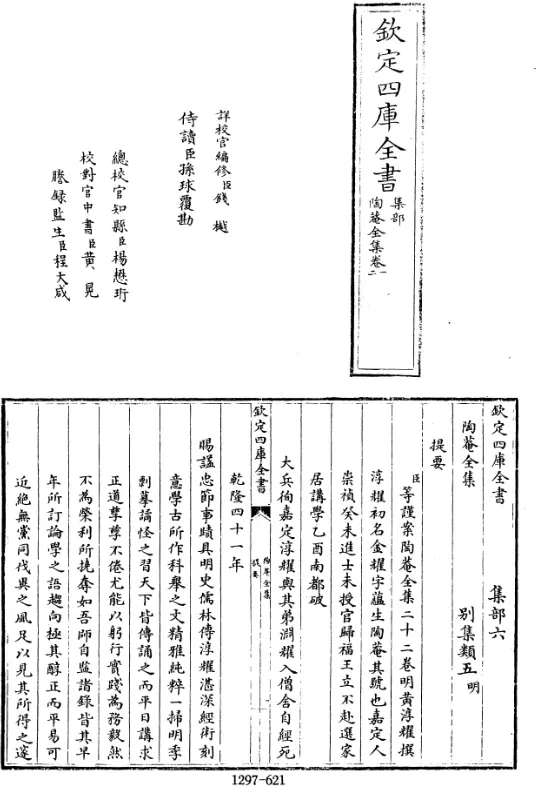 欽定四庫全書
集部
陶菴全集卷一
詳校官編修臣錢樾
侍讀臣孫球覆勘
總校官知縣臣楊懋珩
校對官中書臣黃晃
謄錄監生臣程大咸
欽定四庫全書 集部六
陶菴全集 別集類五明
提要
臣等謹案陶菴全集二十二卷明黃淳耀撰
淳耀初名金耀字蘊生陶菴其號也嘉定人
崇禎癸未進士未授官歸福王立不赴選家
居講學乙酉南都破
大兵徇嘉定淳耀與其弟淵耀入僧舍自經死
欽定四庫全書
陶菴全集
提要
乾隆四十一年
賜諡忠節事蹟具明史儒林傳淳耀湛深經術刻
意學古所作科舉之文精雅純粹一掃明季
剽摹譎怪之習天下皆傳誦之而平日講求
正道孳孳不倦尤能以躬行實踐為務毅然
不為榮利所撓奪如吾師自監諸錄皆其早
年所訂論學之語趨向極其醇正而平易可
近絕無黨同伐異之風足以見其所得之邃
1297-621